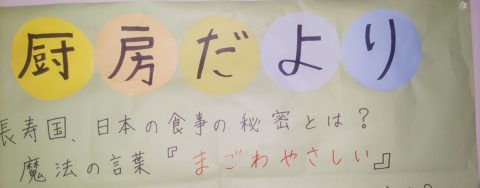 厨房だより
長寿国、日本の食事の秘密とは？
魔法の言葉『まごわやさしい』